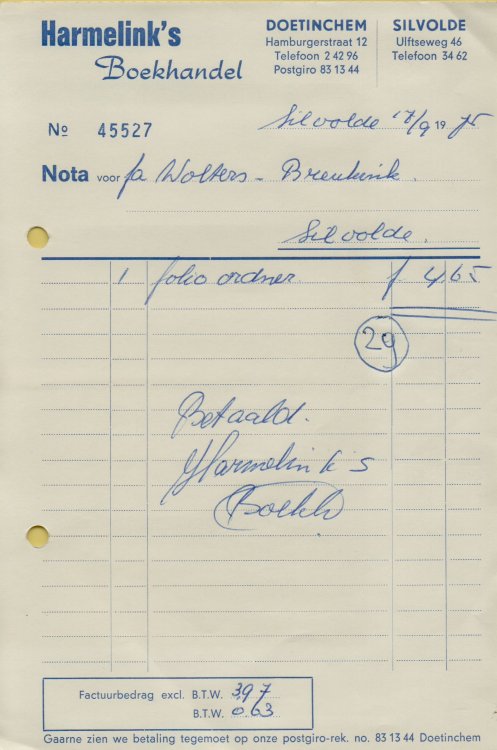 Harmelink's
Boekhandel
DOETINCHEM
Hamburgerstraat 12
Telefoon 2 42 96
Postgiro 83 13 44
SILVOLDE
Ulftseweg 46
Telefoon 34 62
No 45527
Silvolde 17/9 1975
Nota voor fa Wolters - Breukink.
Silvolde.
1 folio ordner f 4.65
29
Betaald.
Harmelink's
Boekh
Factuurbedrag excl. B.T.W. 3.97
B.T.W. 0.63
Gaarne zien we betaling tegemoet op onze postgiro-rek. no. 83 13 44 Doetinchem